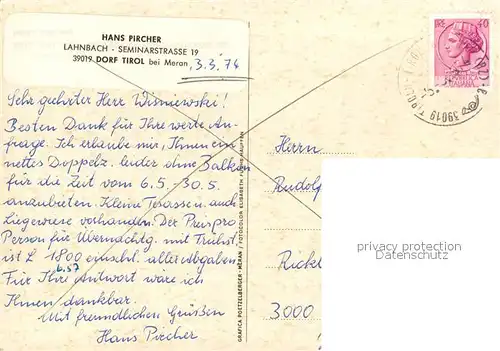 HANS PIRCHER
LAHNBACH - SEMINARSTRASSE 19
39019 DORF TIROL bei Meran, 3.3.74
Sehr geehrter Herr Wisniewski!
Besten Dank für Ihre werte An-
frage. Ich erlaube mir, Ihnen ein
nettes Doppelz. leider ohne Balkon
für die Zeit vom 6.5.-30.5.
anzubieten. Kleine Terasse u. auch
Liegewiese vorhanden. Der Preis pro
Person für Übernachtg. mit Frühst.
ist L 1800 einschl. aller Abgaben
6.57
Für Ihre Antwort wäre ich
Ihnen dankbar.
Mit freundlichen Grüßen
Hans Pircher
GRAFICA POETZELBERGER - MERAN / FOTOCOLOR ELISABETH
LIRE 40
ITALIANA
39019
Herrn
Rudolf
3000
privacy protection
Datenschutz